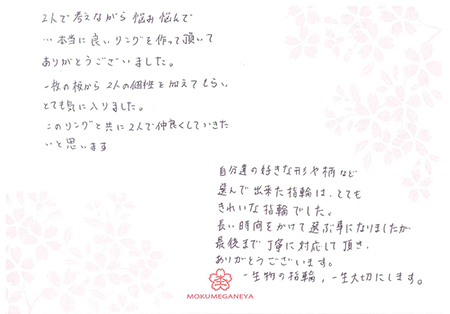 2人で考えながら悩み悩んで
…本当に良いリングを作って頂いて
ありがとうございました。
一枚の板から2人の個性を加えてもらい、
とても気に入りました。
このリングと共に2人で仲良くしていきた
いと思います
自分達の好きな形や柄など
選んで出来た指輪は、とても
きれいな指輪でした。
長い時間をかけて選ぶ事になりましたが
最後まで丁寧に対応して頂き、
ありがとうございます。
一生物の指輪、一生大切にします。
MOKUMEGANEYA